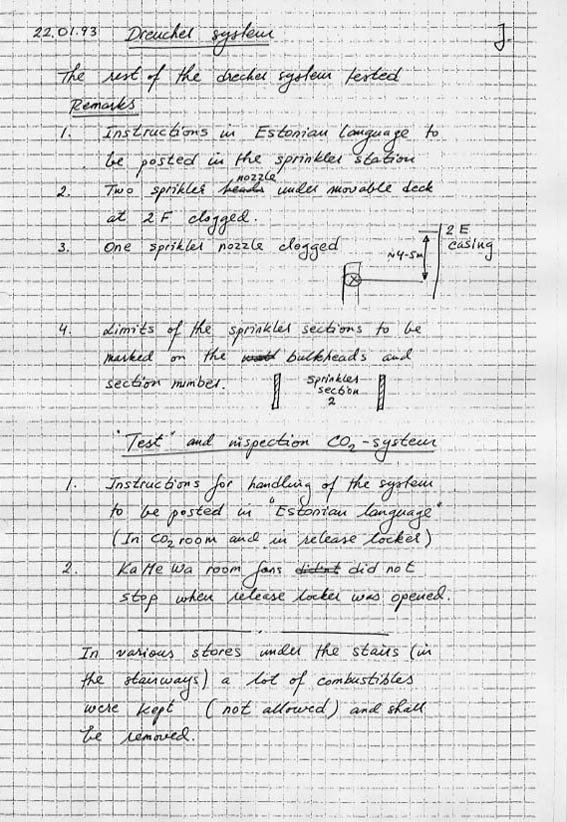 22.01.93 Dreucher system J.
The rest of the drecher system tested
Remarks
1. Instructions in Estonian Language to
be posted in the sprinkler station
nozzle
2. Two sprikler heads under movable deck
at 2F clogged.
3. One sprikler nozzle clogged
2 E
casing
~4-5m
4. Limits of the sprinkler sections to be
marked on the bulkheads and
section number.
Sprinkler
section
2
"Test" and inspection CO2-system
1. Instructions for handling of the system
to be posted in "Estonian language"
(In CO2 room and in release locker)
2. KaMeWa room fans didn't did not
stop when release locker was opened.
In various stores under the stairs (in
the stairways) a lot of combustibles
were kept (not allowed) and shall
be removed.